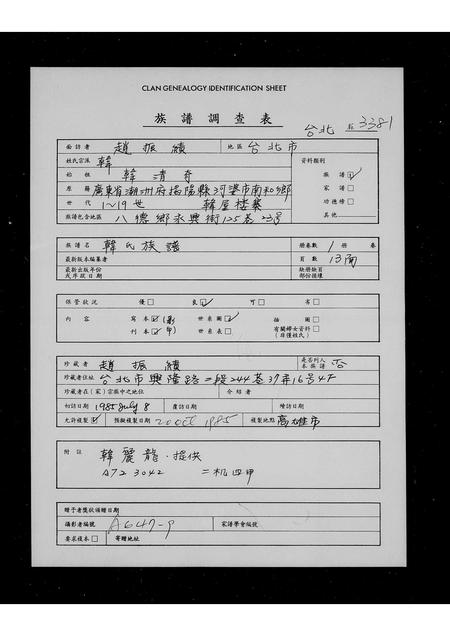 CLAN GENEALOGY IDENTIFICATION SHEET
族譜調查表
台北 3381
面訪者 趙振績 地區 台北市
姓氏宗派 韓 資料類別
始祖 韓清奇 族譜☑
原籍 廣東省潮州府揭陽縣河婆市南和鄉 家譜□
世代 1~19世 韓屋樓寨 功德榜□
族譜包含地區 八德鄉永興街125巷23号 其他
族譜名 韓氏族譜 册卷數 1 册卷
最新版本編纂者 頁數 13面
最新出版年份或序跋日期 缺册缺頁部份損壞
保管狀況 優□ 良☑ 可□ 劣□
內容 寫本☑(影 世系圖☑ 插圖□
刊本☑印) 世系表□ 有關婦女資料□(非僅姓氏)
珍藏者 趙振績 是否列入本族譜 否
珍藏者住址 台北市興隆路二段244巷37弄16号4F
珍藏者在(家)宗族中之地位 介紹者
初訪日期 1985 July 8 覆訪日期 續訪日期
允許複製☑ 預擬複製日期 20 Oct 1985 複製地點 高雄市
附註 韓麗龍·提供
A723042 二机四甲
贈予者獎狀頒贈日期
攝影者編號 A647-9 家譜學會編號
要求複本□ 寄贈地址